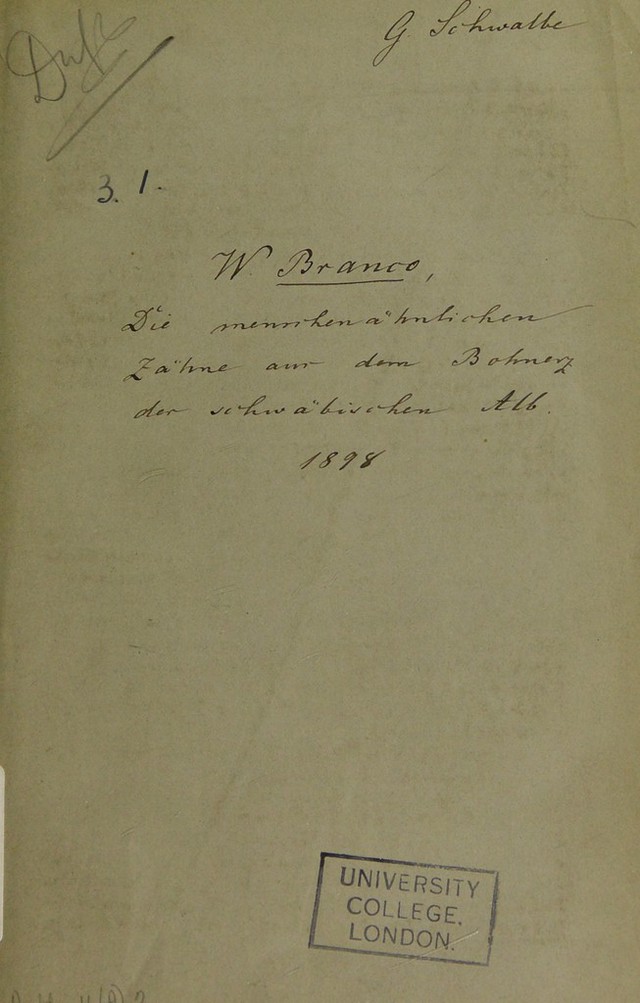 G. Schwalbe
3. 1.
W. Branco,
Die menschenähnlichen
Zähne aus dem Bohnerz
der schwäbischen Alb.
1898
UNIVERSITY
COLLEGE,
LONDON.